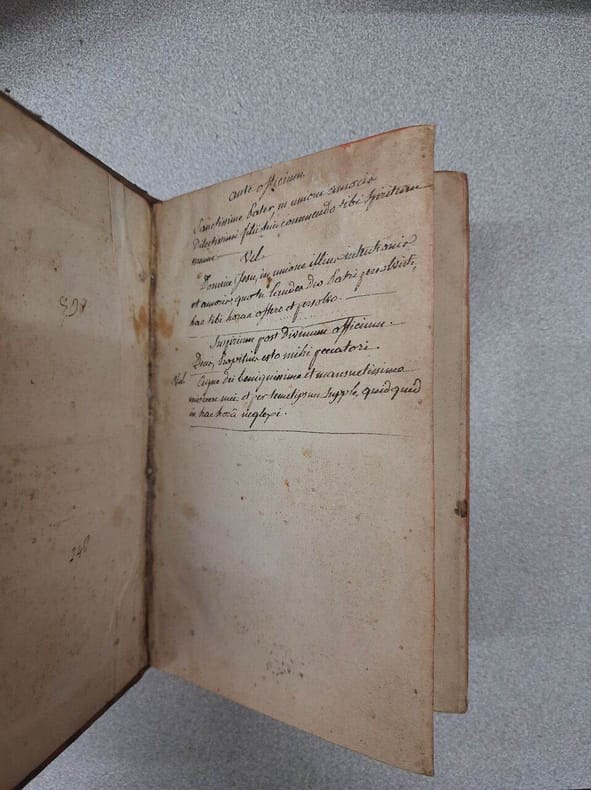 ante officium
Sanctissime Pater, in unione amoris
Dilectissimi filii tui commendo tibi Spiritum
meum
Vel
Domine Jesu, in unione illius intentionis
et amoris quo tu laudes deo Patri persolvisti,
hac tibi horam offero et persolvo.
Suspirium post divinum officium.
Deus, propitius esto mihi peccatori.
Vel Agne dei benignissime et mansuetissime
miserere mei et per temetipsum supple, quidquid
in hac horâ neglexi.
248